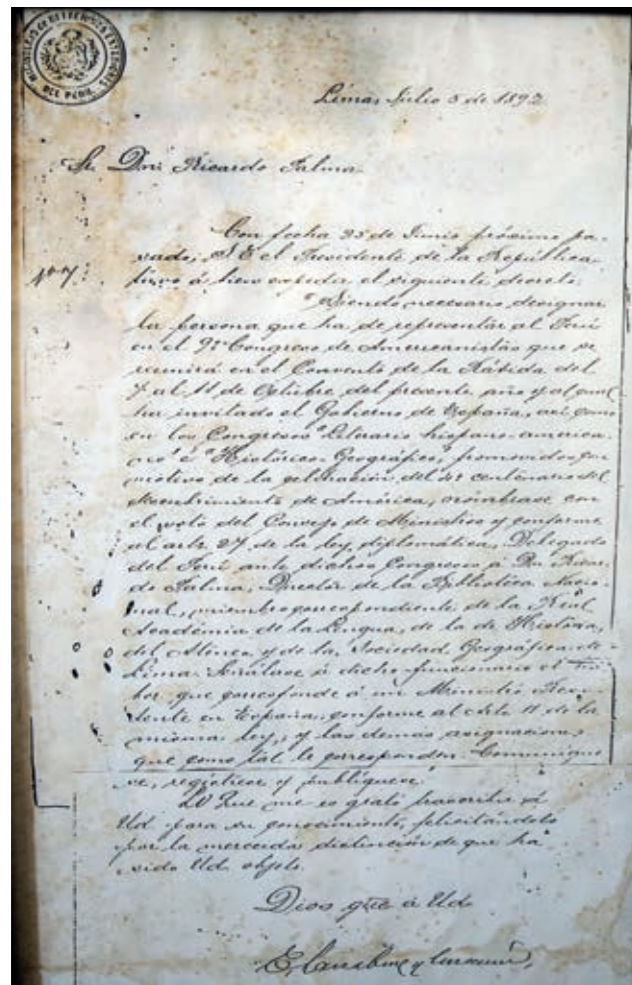 MINISTERIO DE RELACIONES EXTERIORES
DEL PERU
Lima, Julio 5 de 1892
Sr. Don Ricardo Palma
Con fecha 25 de Junio próximo pa-
sado, S E el Presidente de la República
tuvo á bien expedir el siguiente decreto:
"Siendo necesario designar
la persona que ha de representar al Perú
en el 9º Congreso de Americanistas que se
reunirá en el Convento de la Rábida del
7 al 11 de Octubre del presente año y al cual
ha invitado el Gobierno de España, así como
en los Congresos "Literario hispano-america-
no" é "Histórico Geográfico", promovidos por
motivo de la celebración del centenario del
descubrimiento de América, nómbrase con
el voto del Consejo de Ministros y conforme
al arto 27 de la ley diplomática, Delegado
del Perú ante dichos Congresos á Dn Ricar-
do Palma, Director de la Biblioteca Nacio-
nal, miembro correspondiente de la Real
Académia de la Lengua, de la de Historia,
del Ateneo y de la Sociedad Geográfica de
Lima. Señálase á dicho funcionario el
que corresponde á un Ministro Resi-
dente en España, conforme al arto 11 de la
misma ley, y las demas asignaciones
que como tal le correspondan. Comuníque
se, regístrese y publíquese."
Lo que me es grato trascribir á
Ud. para su conocimiento, felicitándolo
por la merecida distincion de que ha
sido Ud. objeto.
Dios gue á Ud.